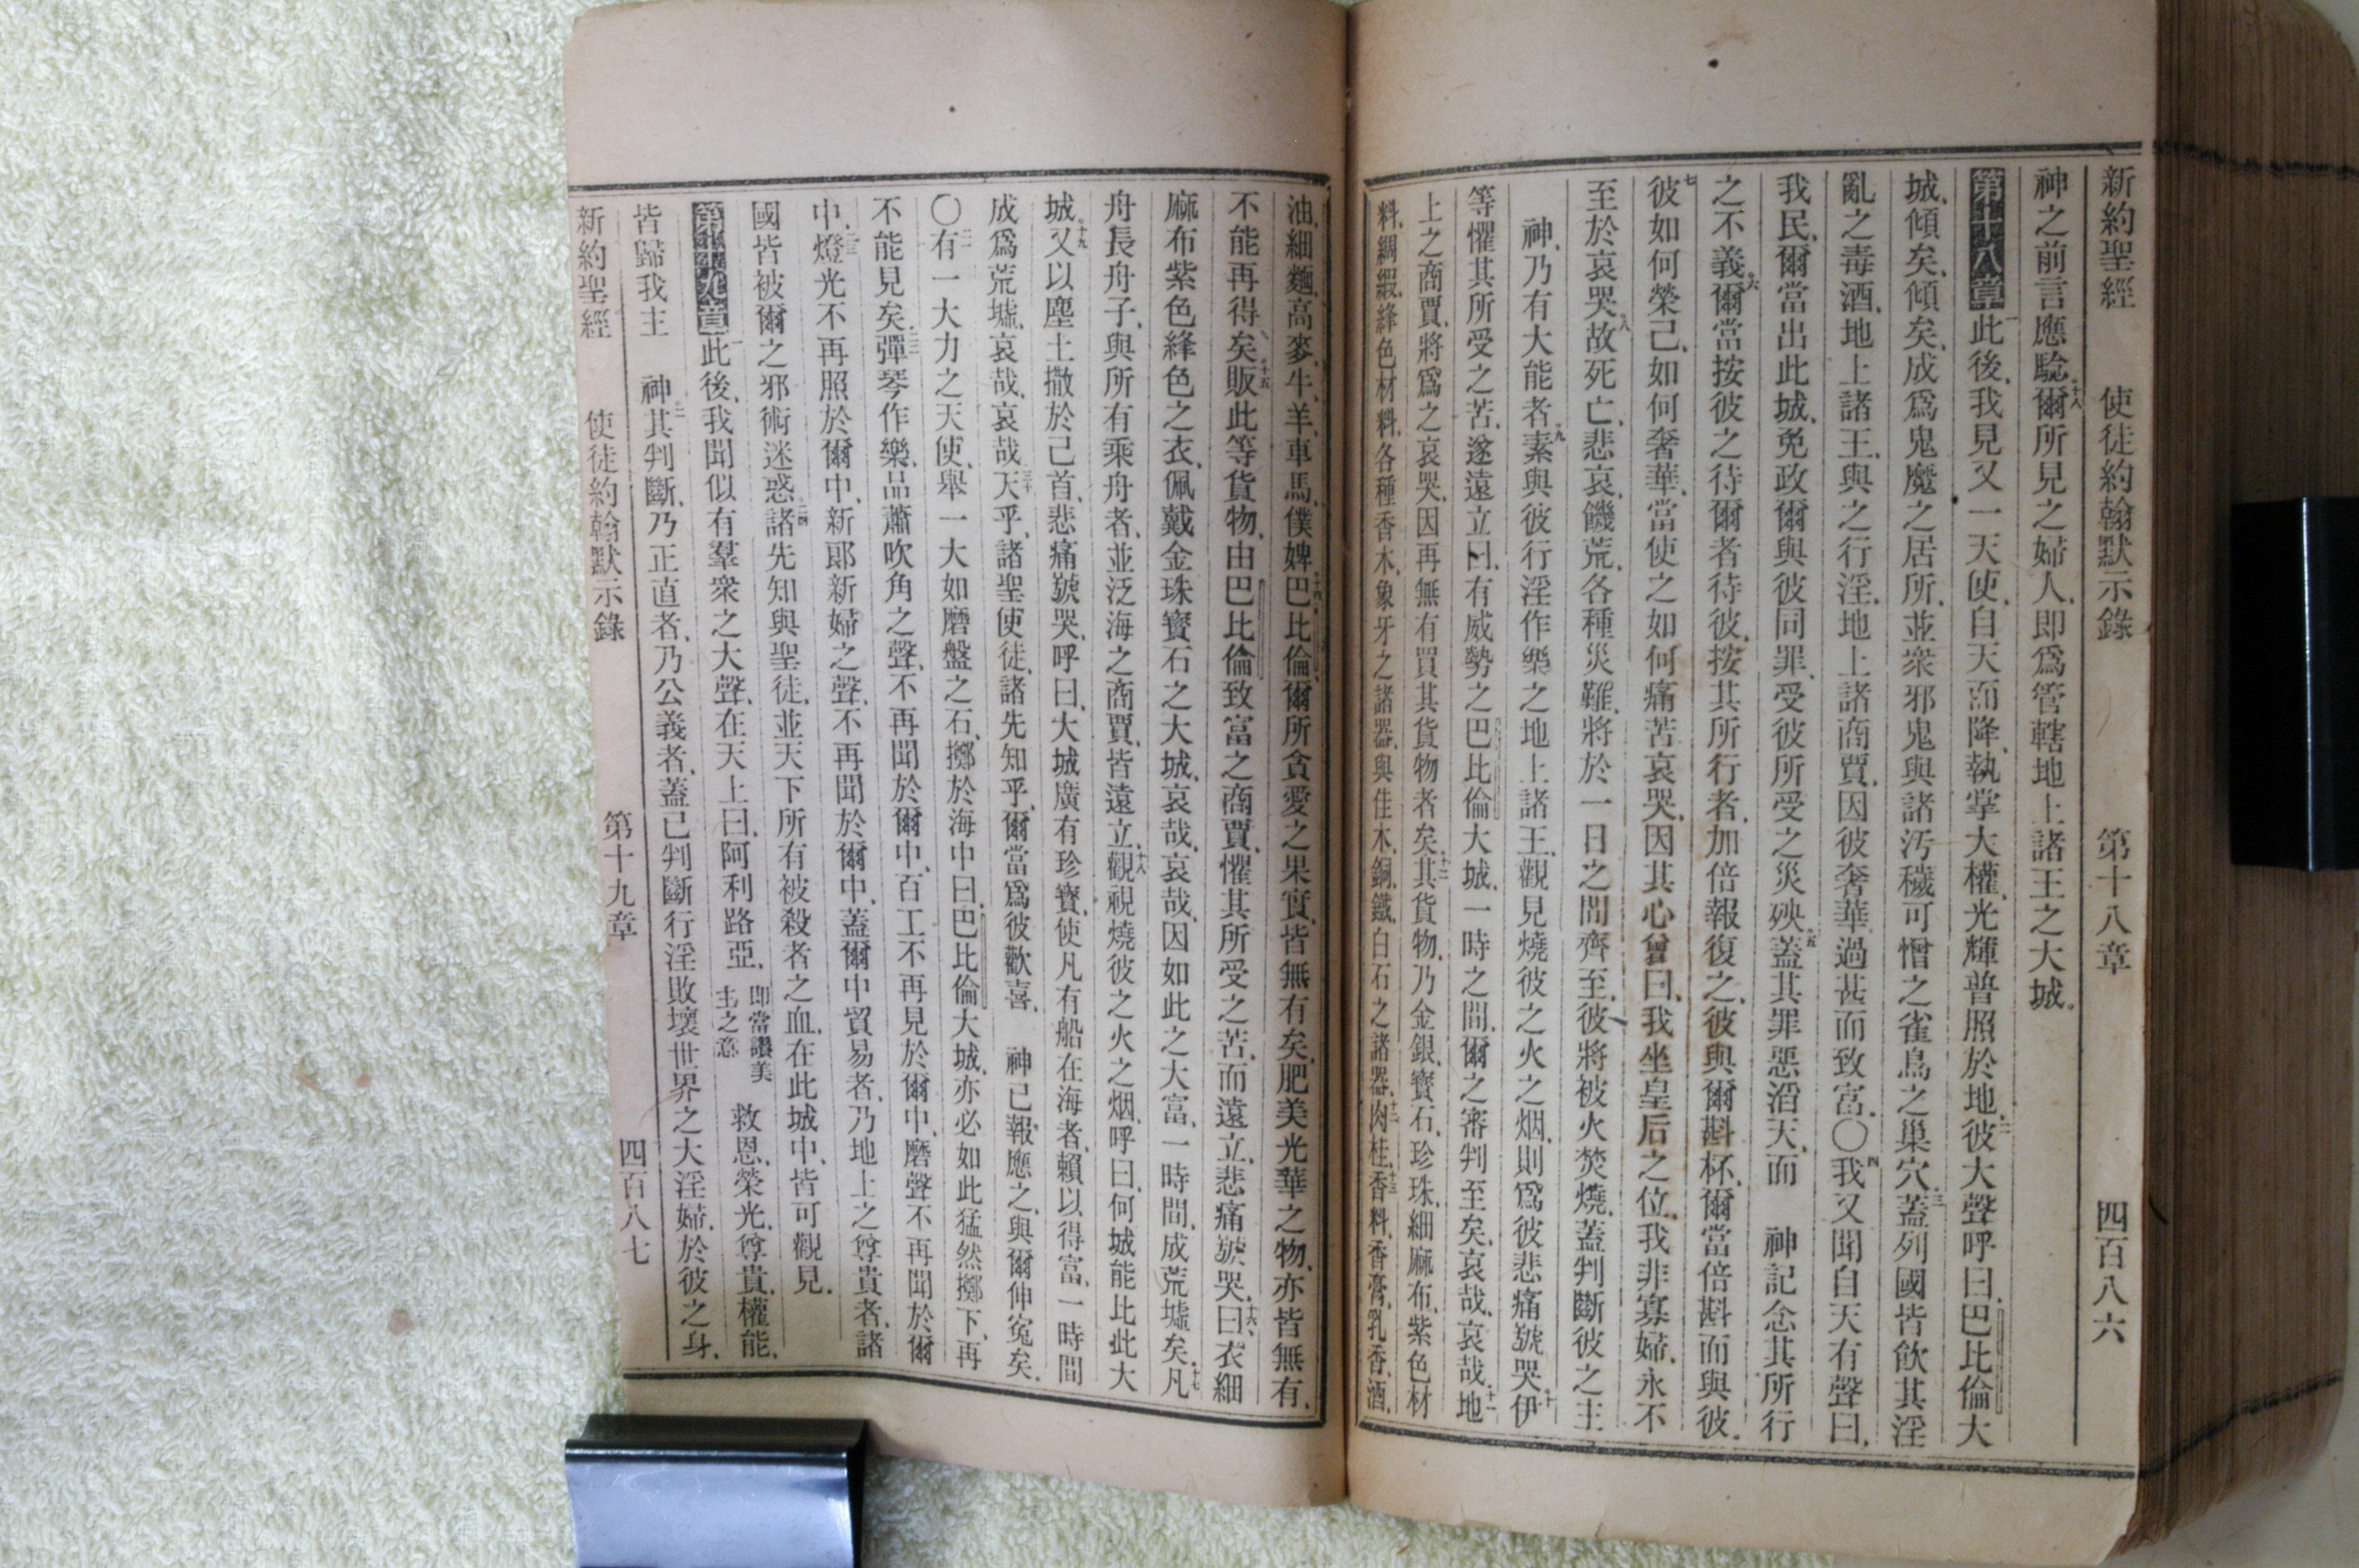 新約聖經　使徒約翰默示錄　第十八章　四百八六
神之前言應驗、十八爾所見之婦人、即爲管轄地上諸王之大城。
第十八章一此後、我見又一天使、自天而降、執掌大權、光輝普照於地、二彼大聲呼曰、巴比倫大
城、傾矣、傾矣、成爲鬼魔之居所、並衆邪鬼與諸汚穢可憎之雀鳥之巢穴、三蓋列國皆飲其淫
亂之毒酒、地上諸王、與之行淫、地上諸商賈、因彼奢華過甚而致富。〇四我又聞自天有聲曰、
我民、爾當出此城、免致爾與彼同罪、受彼所受之災殃、五蓋其罪惡滔天、而　神記念其所行
之不義、六爾當按彼之待爾者待彼、按其所行者、加倍報復之、彼與爾斟杯、爾當倍斟而與彼。
七彼如何榮己、如何奢華、當使之如何痛苦哀哭、因其心曾曰、我坐皇后之位、我非寡婦、永不
至於哀哭、八故死亡、悲哀、饑荒、各種災難、將於一日之間齊至、彼將被火焚燒、蓋判斷彼之主
神、乃有大能者、九素與彼行淫作樂之地上諸王、觀見燒彼之火之烟、則爲彼悲痛號哭、十伊
等懼其所受之苦、遂遠立曰、有威勢之巴比倫大城、一時之間、爾之審判至矣、哀哉、哀哉、十一地
上之商賈、將爲之哀哭、因再無有買其貨物者矣、十二其貨物、乃金、銀、寶石、珍珠、細麻布、紫色材
料、綢緞、絳色材料、各種香木、象牙之諸器、與佳木、銅、鐵、白石之諸器、十三肉桂、香料、香膏、乳香、酒、
油、細麵、高麥、牛、羊、車、馬、僕婢、十四巴比倫、爾所貪愛之果實、皆無有矣、肥美光華之物、亦皆無有、
不能再得矣、十五販此等貨物、由巴比倫致富之商賈、懼其所受之苦、而遠立、悲痛號哭、十六曰、衣細
麻布紫色絳色之衣、佩戴金珠寶石之大城、哀哉、哀哉、因如此之大富、一時間、成荒墟矣、十七凡
舟長舟子、與所有乘舟者、並泛海之商賈、皆遠立、十八觀視燒彼之火之烟、呼曰、何城能比此大
城、十九又以塵土撒於己首、悲痛號哭、呼曰、大城廣有珍寶、使凡有船在海者、賴以得富、一時間
成爲荒墟、哀哉、哀哉、二十天乎、諸聖使徒、諸先知乎、爾當爲彼歡喜、　神已報應之、與爾伸寃矣。
〇二一有一大力之天使、舉一大如磨盤之石、擲於海中曰、巴比倫大城、亦必如此猛然擲下、再
不能見矣、二二彈琴作樂、品簫吹角之聲、不再聞於爾中、百工不再見於爾中、磨聲不再聞於爾
中、二三燈光不再照於爾中、新郞新婦之聲、不再聞於爾中、蓋爾中貿易者、乃地上之尊貴者、諸
國皆被爾之邪術迷惑、二四諸先知與聖徒、並天下所有被殺者之血、在此城中、皆可觀見。
第十九章一此後、我聞似有羣衆之大聲、在天上曰、阿利路亞、即當讚美主之意　救恩、榮光、尊貴、權能、
皆歸我主　神、二其判斷、乃正直者、乃公義者、蓋已判斷行淫敗壞世界之大淫婦、於彼之身、
新約聖經　使徒約翰默示錄　第十九章　四百八七